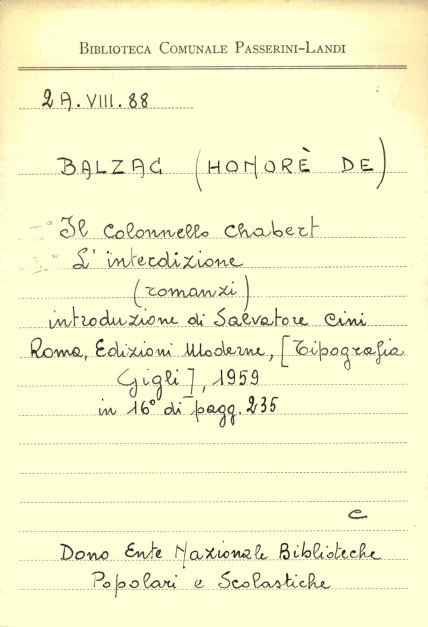 BIBLIOTECA COMUNALE PASSERINI-LANDI
2A.VIII.88
BALZAC (HONORÈ DE)
Il Colonnello Chabert
L'interdizione
(romanzi)
introduzione di Salvatore Cini
Roma, Edizioni Moderne, [Tipografia
Gigli], 1959
in 16° di pagg. 235
C
Dono Ente Nazionale Biblioteche
Popolari e Scolastiche